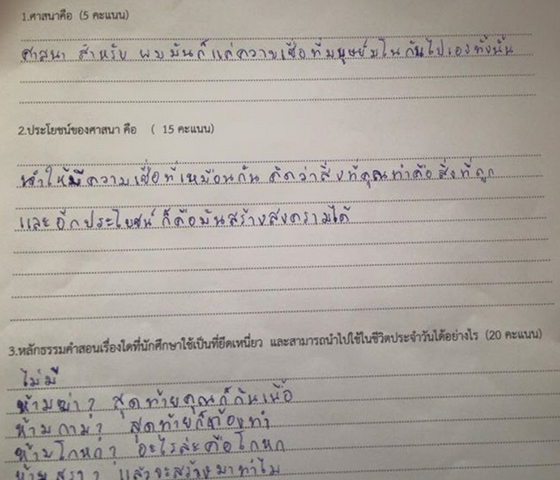 1.ศาสนาคือ (5 คะแนน)
ศาสนา สำหรับ ผมมันก็แค่ความเชื่อที่มนุษย์มโนกันไปเองทั้งนั้น
2.ประโยชน์ของศาสนา คือ ( 15 คะแนน)
ทำให้มีความเชื่อที่เหมือนกัน คิดว่าสิ่งที่คุณทำคือสิ่งที่ถูก
และอีกประโยชน์ ก็คือมันสร้างสงครามได้
3.หลักธรรมคำสอนเรื่องใดที่นักศึกษาใช้เป็นที่ยึดเหนี่ยว และสามารถนำไปใช้ในชีวิตประจำวันได้อย่างไร (20 คะแนน)
ไม่มี
ห้ามฆ่า? สุดท้ายคุณก็กินเนื้อ
ห้ามกาม? สุดท้ายก็ต้องทำ
ห้ามโกหก? อะไรล่ะคือโกหก
ห้ามสุรา? แล้วจะสร้างมาทำไม